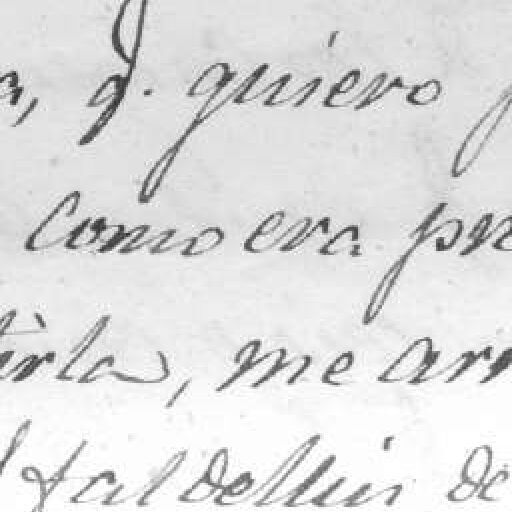 a, q. quiero
como era pre
tirla, me arr
tal de Luis de